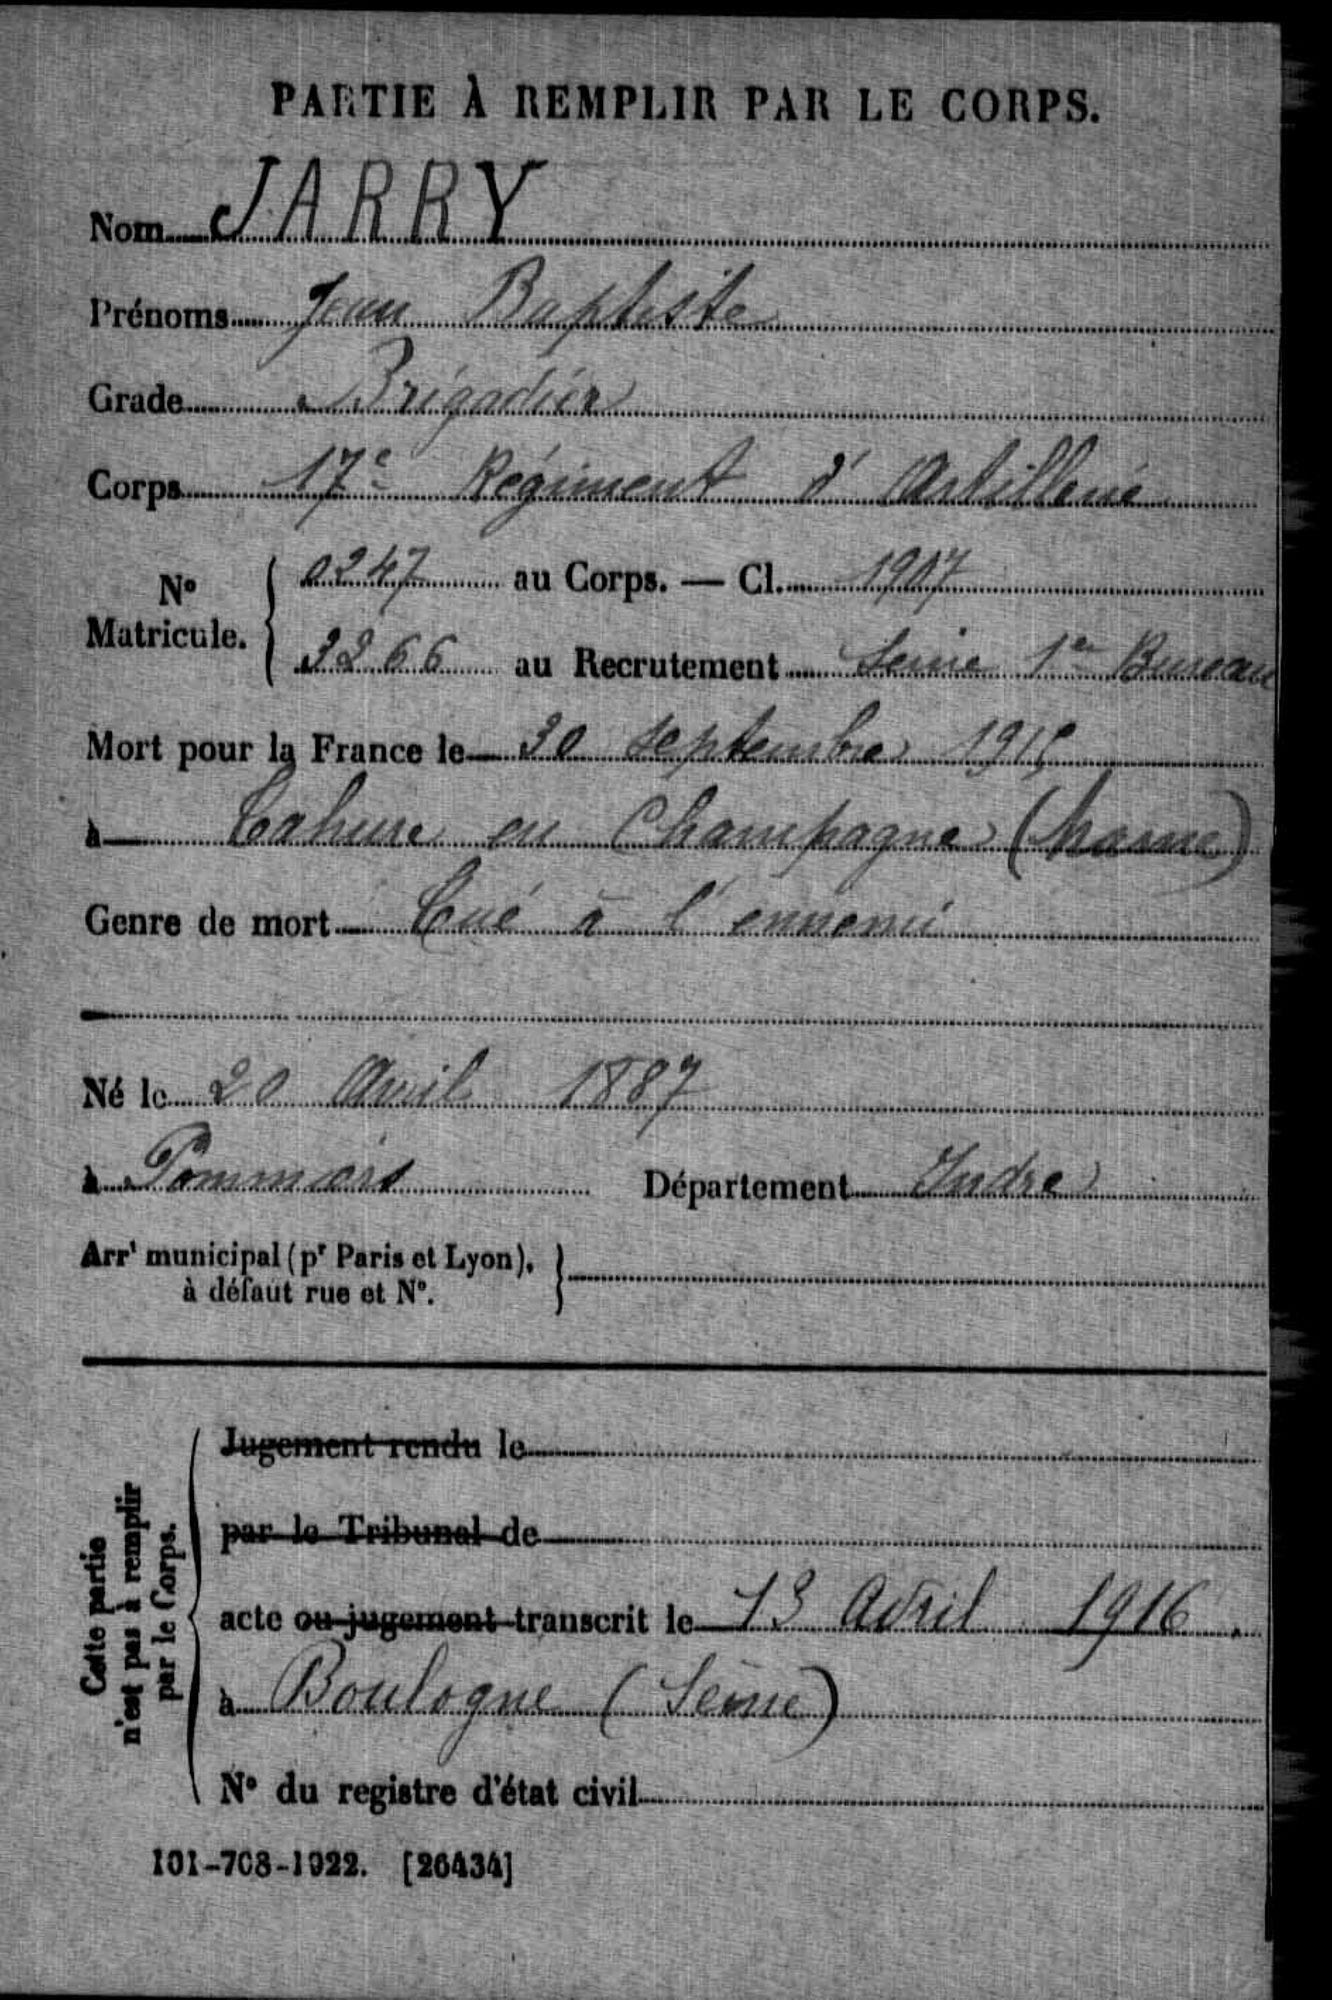 PARTIE À REMPLIR PAR LE CORPS.
Nom JARRY
Prénoms Jean Baptiste
Grade Brigadier
Corps 17e Régiment d'Artillerie
No Matricule. { 0247 au Corps. — Cl. 1907
3266 au Recrutement Seine 1er Bureau
Mort pour la France le 30 septembre 1915
à Tahure en Champagne (Marne)
Genre de mort Tué à l'ennemi
Né le 20 Avril 1887
à Pommiers Département Indre
Arrt municipal (pr Paris et Lyon),
à défaut rue et No.
Cette partie
n'est pas à remplir
par le Corps.
Jugement rendu le
par le Tribunal de
acte ou jugement transcrit le 13 Avril 1916.
à Boulogne (Seine)
No du registre d'état civil
101-708-1922. [26434]